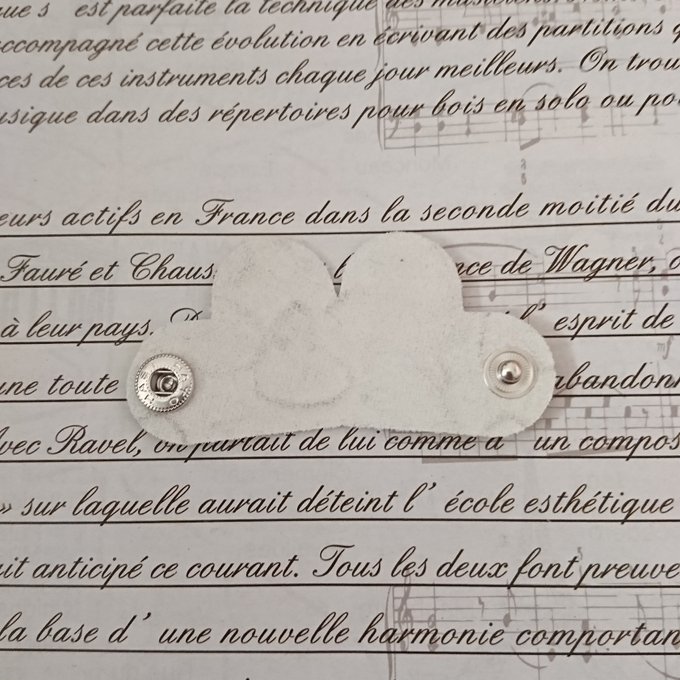 est parfaite la technique des musiciens
accompagné cette évolution en écrivant des partitions
ces de ces instruments chaque jour meilleurs. On trou
usique dans des répertoires pour bois en solo ou po
eurs actifs en France dans la seconde moitié du
Fauré et Chaus ce de Wagner,
à leur pays. l' esprit de
une toute abandon
vec Ravel, on parlait de lui comme d' un compos
» sur laquelle aurait déteint l' école esthétique
it anticipé ce courant. Tous les deux font preuve
la base d' une nouvelle harmonie comportan